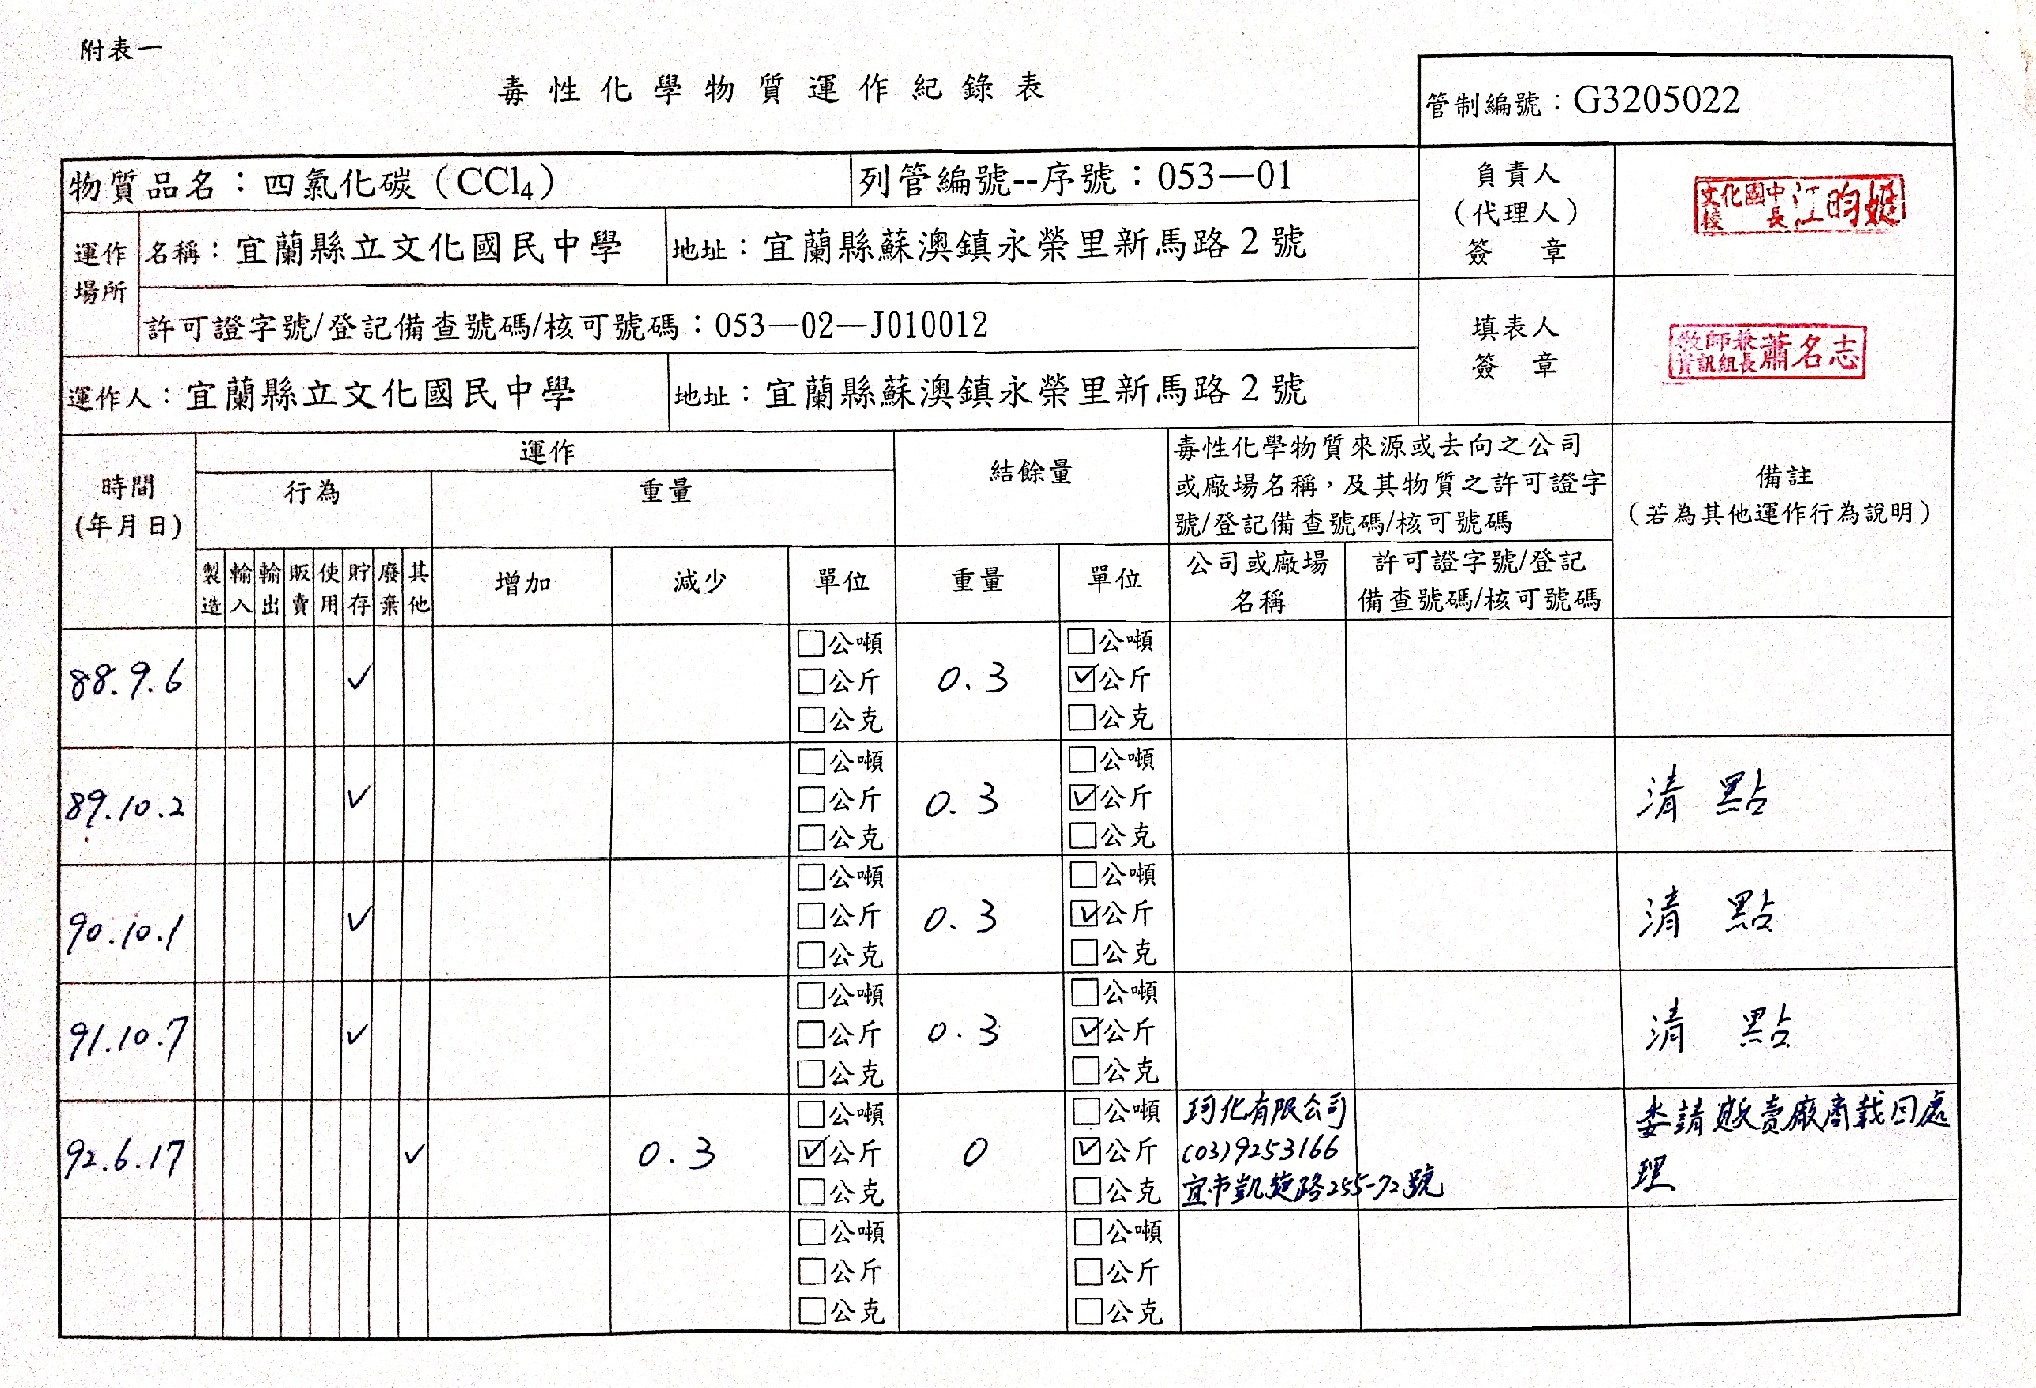 附表一
毒性化學物質運作紀錄表
管制編號：G3205022
物質品名：四氯化碳（CCl4）
列管編號--序號：053—01
負責人
（代理人）
簽 章
文化國中
校長 江昀娗
運作
場所
名稱：宜蘭縣立文化國民中學
地址：宜蘭縣蘇澳鎮永榮里新馬路2號
許可證字號/登記備查號碼/核可號碼：053—02—J010012
填表人
簽 章
教師兼
資訊組長 蕭名志
運作人：宜蘭縣立文化國民中學
地址：宜蘭縣蘇澳鎮永榮里新馬路2號
時間
(年月日)
運作
行為
重量
結餘量
毒性化學物質來源或去向之公司
或廠場名稱，及其物質之許可證字
號/登記備查號碼/核可號碼
備註
（若為其他運作行為說明）
製造 輸入 輸出 販賣 使用 貯存 廢棄 其他
增加 減少 單位 重量 單位
公司或廠場
名稱
許可證字號/登記
備查號碼/核可號碼
□公噸 □公噸
88.9.6 ✓ □公斤 0.3 ☑公斤
□公克 □公克
□公噸 □公噸
89.10.2 ✓ □公斤 0.3 ☑公斤 清點
□公克 □公克
□公噸 □公噸
90.10.1 ✓ □公斤 0.3 ☑公斤 清點
□公克 □公克
□公噸 □公噸
91.10.7 ✓ □公斤 0.3 ☑公斤 清點
□公克 □公克
□公噸 □公噸 珂化有限公司 委請販賣廠商載回處
92.6.17 ✓ 0.3 ☑公斤 0 ☑公斤 (03)9253166
□公克 □公克 宜市凱旋路255-72號 理
□公噸 □公噸
□公斤 □公斤
□公克 □公克